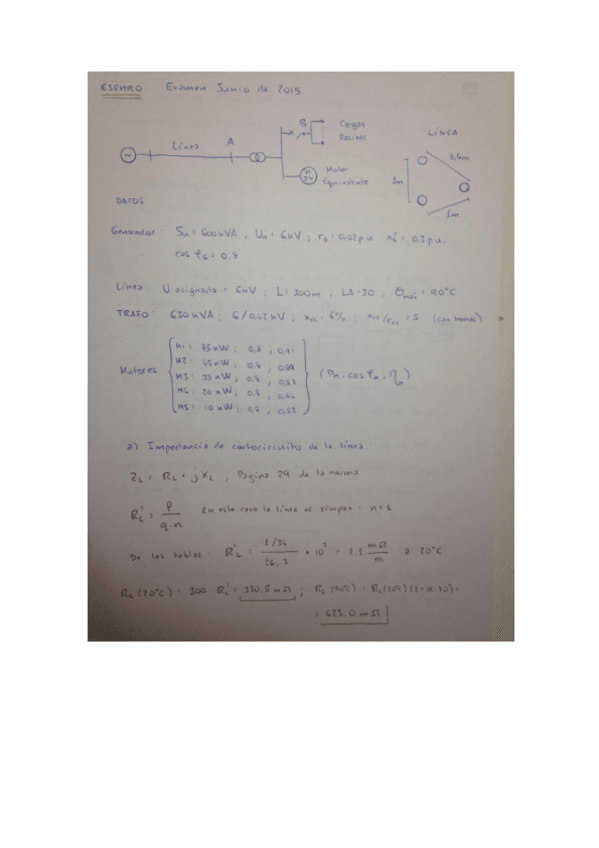 EJEMPLO. Examen Junio de 2015
Línea A B Cargas Pasivas
Motor Equivalente
LÍNEA
1m
1m
DATOS
Generador: Sn = 600 kVA ; Un = 6 kV ; rG = 0,02 p.u. x"G = 0,1 p.u.
cos φG = 0,8
Línea: U asignada = 6 kV ; L = 300 m ; LA-30 ; θmáx = 90°C
TRAFO: 630 kVA ; 6/0,42 kV ; xcc = 6% ; xcc/rcc = 5
Motores
M1: 75 kW ; 0,8 ; 0,91
M2: 45 kW ; 0,8 ;
M3: 35 kW ; 0,8 ; 0,87
M4: 20 kW ; 0,8 ;
M5: 10 kW ; 0,8 ; 0,82
(Pn ; cos φn ; η)
a) Impedancia de cortocircuito de la línea.
ZL = RL + j XL , Página 29 de la norma
R'L = ρ / q·n En este caso la línea es simplex : n = 1
De las tablas : R'L = 1/34 / 26,7 · 10³ = 1,1 mΩ/m a 20°C
RL (20°C) = 300 R'L = 330,5 mΩ ; RL (90°C) = RL(20°C)(1+α·70) =
= 423,0 mΩ